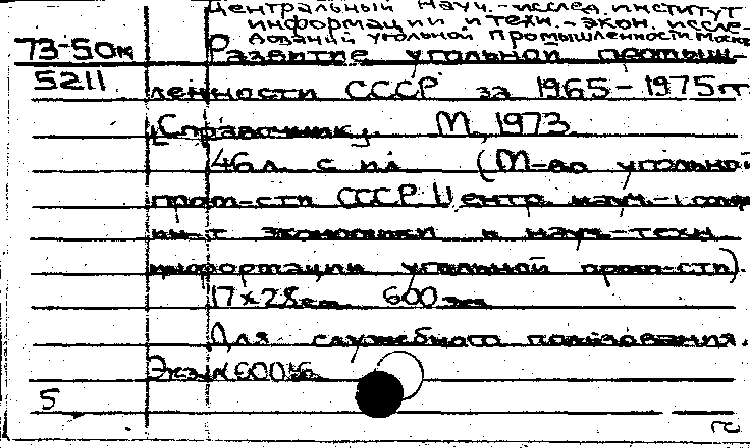 Центральный науч.-исслед. институт
информации и техн.-экон. иссле-
дований угольной промышленности. Москва
73-50к Развитие угольной промыш-
5211 ленности СССР за 1965-1975гг
[Справочник]. М., 1973
46л. с ил. (М-во угольной
пром-сти СССР. Центр. науч.-
ин-т экономики и науч.-техн.
информации угольной пром-сти).
17x28см. 600экз.
Для служебного пользования.
Экз.
5